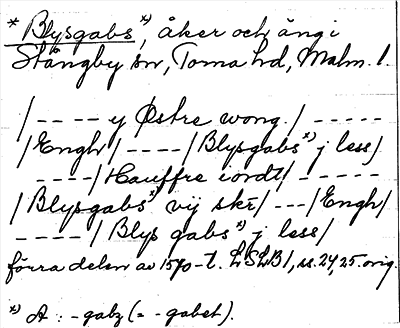 * Blysgabs *), åker och äng i
Stångby sn, Torna hd, Malm. l.
/ - - - - y Østre wong. / - - - - -
/ Engh / - - - - / Blysgabs *) j less /
- - - - / Hauffre iordt / - - - - -
/ Blysgabs *) vij skr / - - - / Engh /
- - - - / Blys gabs *) j less /
förra delen av 1570-t. LSLB 1, ss. 24, 25. orig.
*) A : -gabz (= -gabet).